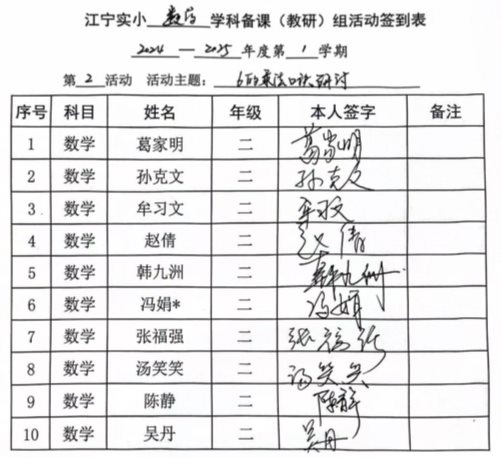 江宁实小 数学 学科备课（教研）组活动签到表
2024 — 2025 年度第 1 学期
第 2 活动 活动主题： 6的乘法口诀研讨
序号 科目 姓名 年级 本人签字 备注
1 数学 葛家明 二 葛家明
2 数学 孙克文 二 孙克文
3 数学 牟习文 二 牟习文
4 数学 赵倩 二 赵倩
5 数学 韩九洲 二 韩九洲
6 数学 冯娟* 二 冯娟
7 数学 张福强 二 张福强
8 数学 汤笑笑 二 汤笑笑
9 数学 陈静 二 陈静
10 数学 吴丹 二 吴丹